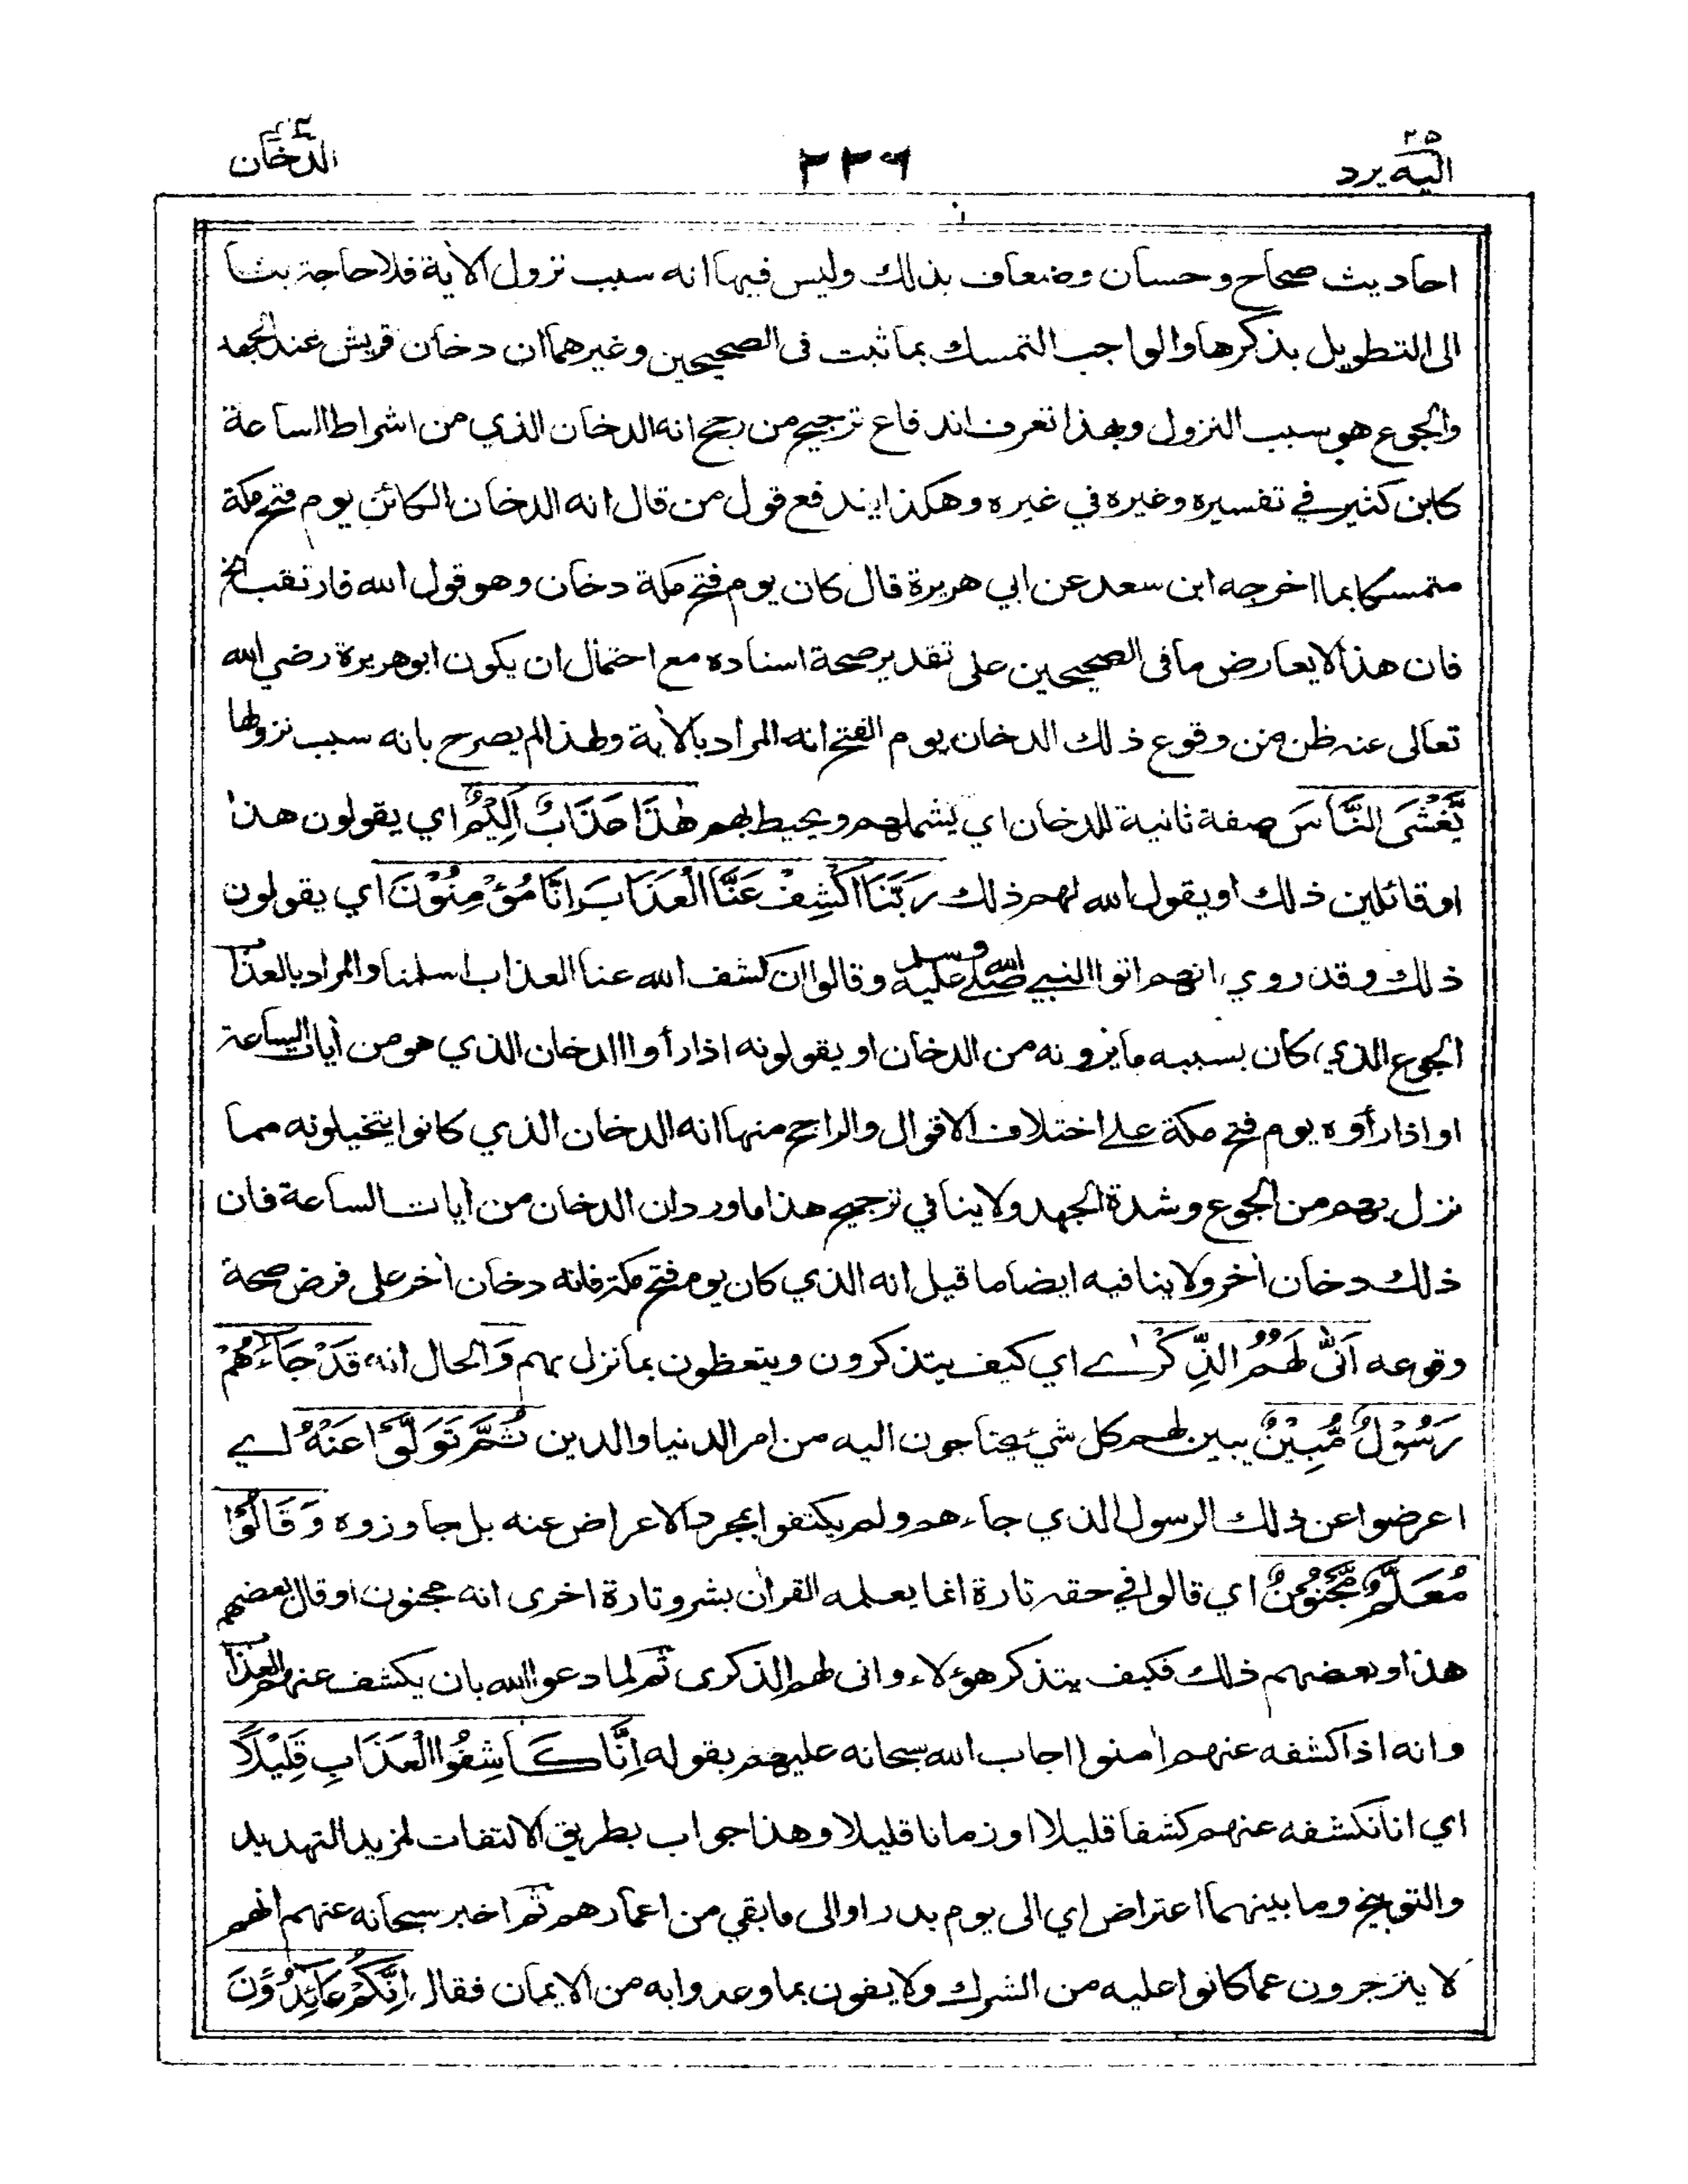 ٢٥
اليه يرد
٣٣٦
٤٤
الدخان
احاديث صحاح وحسان وضعاف بذلك وليس فيها انه سبب نزول الأية فلا حاجة بنا
الى التطويل بذكرها والواجب التمسك بما ثبت فى الصحيحين وغيرهما ان دخان قريش عند الجهد
والجوع هو سبب النزول وبهذا تعرف اندفاع ترجيح من رجح انه الدخان الذي من اشراط الساعة
كابن كثير في تفسيره وغيره في غيره وهكذا يندفع قول من قال انه الدخان الكائن يوم فتح مكة
متمسكا بما اخرجه ابن سعد عن ابي هريرة قال كان يوم فتح مكة دخان وهو قول الله فارتقب الخ
فان هذا لا يعارض ما فى الصحيحين على تقدير صحة اسناده مع احتمال ان يكون ابو هريرة رضي الله
تعالى عنه ظن من وقوع ذلك الدخان يوم الفتح انه المراد بالأية ولهذا لم يصرح بانه سبب نزولها
يَّغْشَى النَّاسَ صفة ثانية للدخان اي يشملهم ويحيط بهم هٰذَا عَذَابٌ اَلِيْمٌ اي يقولون هذا
او قائلين ذلك او يقول الله لهم ذلك رَبَّنَا اكْشِفْ عَنَّا الْعَذَابَ اِنَّا مُؤْمِنُوْنَ اي يقولون
ذلك وقد روي انهم اتوا النبي صلى الله عليه وسلم وقالوا ان كشف الله عنا العذاب اسلمنا والمراد بالعذاب
الجوع الذي كان بسببه ما يرونه من الدخان او يقولونه اذا رأوا الدخان الذي هو من أيات الساعة
او اذا رأوه يوم فتح مكة على اختلاف الاقوال والراجح منها انه الدخان الذي كانوا يتخيلونه مما
نزل بهم من الجوع وشدة الجهد ولا ينافي ترجيح هذا ما ورد ان الدخان من أيات الساعة فان
ذلك دخان أخر ولا ينافيه ايضا ما قيل انه الذي كان يوم فتح مكة فانه دخان أخر على فرض صحة
وقوعه اَنّٰى لَهُمُ الذِّكْرٰى اي كيف يتذكرون ويتعظون بما نزل بهم وَالحال انه قَدْ جَآءَهُمْ
رَسُوْلٌ مُّبِيْنٌ يبين لهم كل شيء يحتاجون اليه من امر الدنيا والدين ثُمَّ تَوَلَّوْا عَنْهُ اي
اعرضوا عن ذلك الرسول الذي جاءهم ولم يكتفوا بمجرد الاعراض عنه بل جاوزوه وَقَالُوْا
مُعَلَّمٌ مَّجْنُوْنٌ اي قالوا في حقه تارة انما يعلمه القرأن بشر وتارة اخرى انه مجنون او قال بعضهم
هذا وبعضهم ذلك فكيف يتذكر هؤلاء وانى لهم الذكرى ثم لما دعوا الله بان يكشف عنهم العذاب
وانه اذا كشفه عنهم أمنوا اجاب الله سبحانه عليهم بقوله اِنَّا كَاشِفُوا الْعَذَابِ قَلِيْلًا
اي انا نكشفه عنهم كشفا قليلا او زمانا قليلا وهذا جواب بطريق الالتفات لمزيد التهديد
والتوبيخ وما بينهما اعتراض اي الى يوم بدر او الى ما بقي من اعمارهم ثم اخبر سبحانه عنهم انهم
لا ينزجرون عما كانوا عليه من الشرك ولا يفون بما وعدوا به من الايمان فقال اِنَّكُمْ عَآئِدُوْنَ